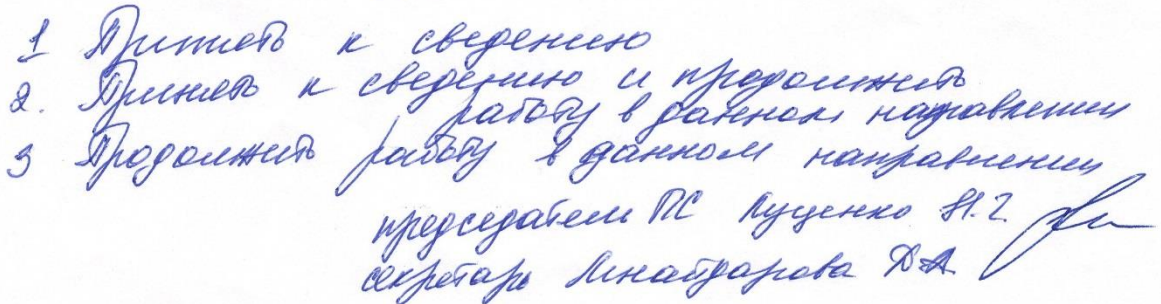 1 Принять к сведению
2. Принять к сведению и продолжить
работу в данном направлении
3 Продолжить работу в данном направлении
председатель ПС Луценко Н.Г.
секретарь Д.А.